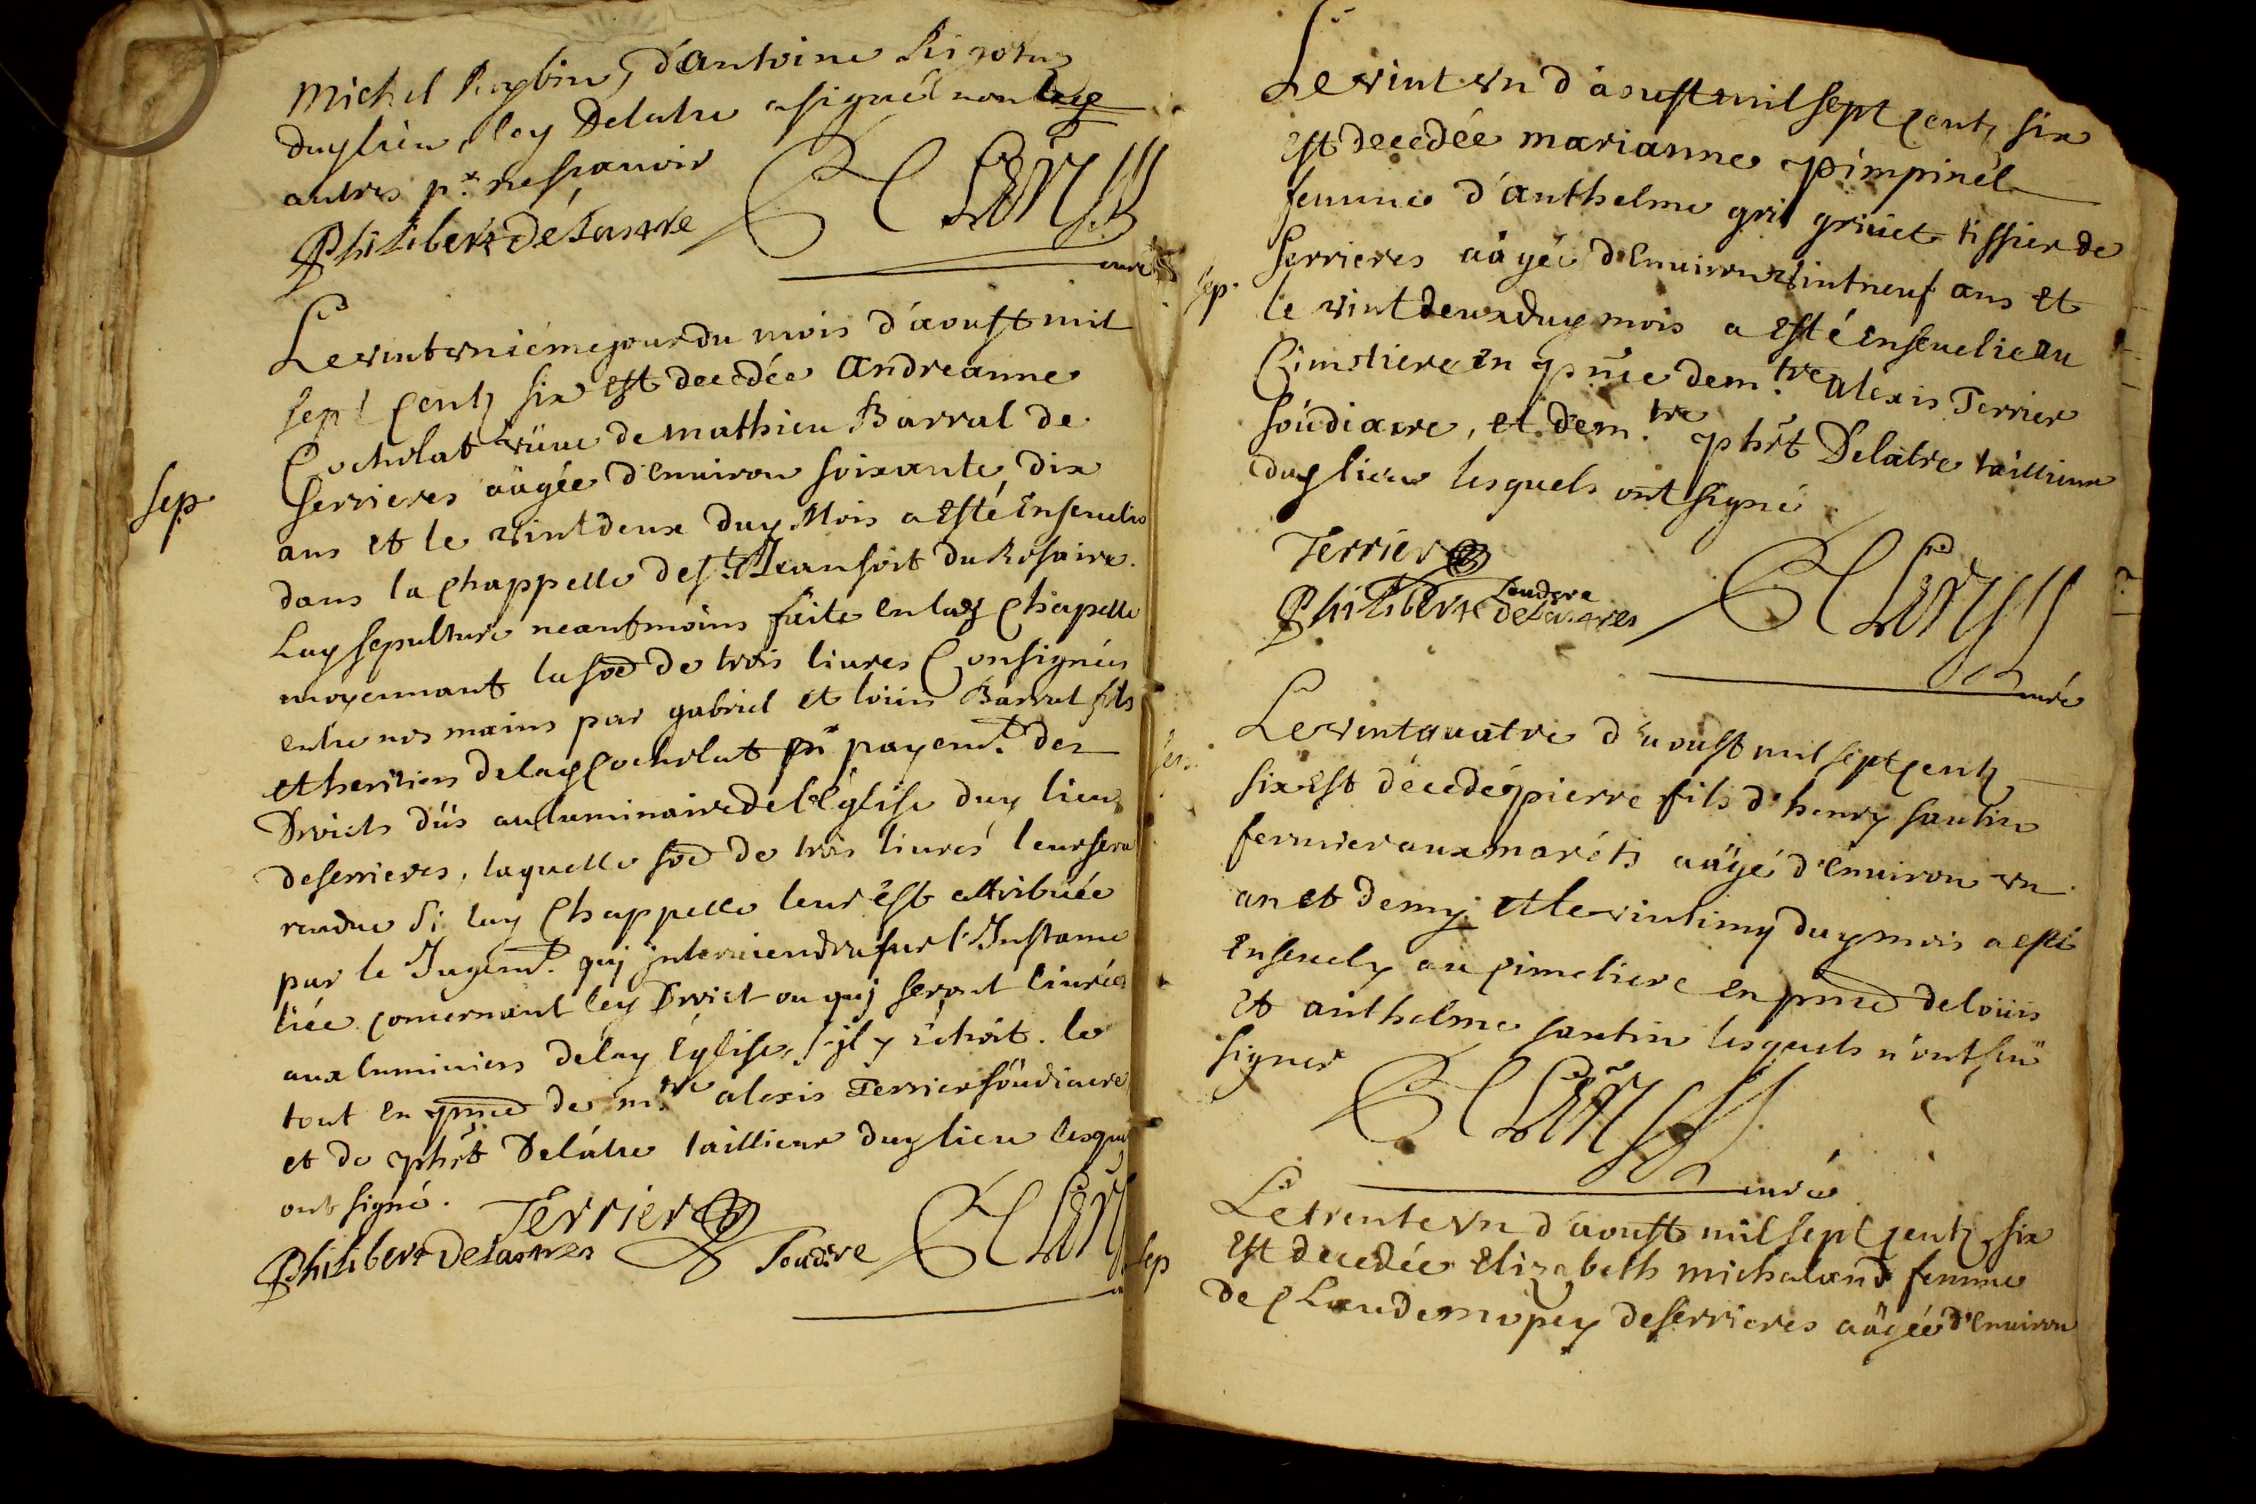 Michel Reybin, d'antoine
duy lieu, ley Delatre a signé non les
autres p.r ne sçavoir
Philibert Delastre
Clerc
curé
Le vint uniéme jour du mois d'aoust mil
sept centz six est decedée Andreanne
Cocholat vüue de mathieu Barral de
sep
serrieres aagée d'enuiron soixante dix
ans et le vint deux duy Mois a esté enseuelie
dans la chappelle de s.t Jean soit du Rosaire.
Lay sepulture neantmoins faite en lay chapelle
moyennant la soe de trois liures Consignées
entre nos mains par gabriel et loüis Barral fils
et heritiers de lay Cocholat en payem.t des
Droicts dûs au luminaire de l'église duy lieu
de serrieres, laquelle soe de trois liures leur sera
rendue si lay Chappelle leur est attribuée
par le Jugem.t quj interuiendra sur l'Instance
liée concernant ley Droict ou quj seront liurées
aux luminiers de lay église, s'jl y échoit. le
tout en pnce de m.tre alexis Terrier soudiacre
et de phrt Delatre taillieur duy lieu lesquels
ont signé.
Terrier
Philibert Delastres
Soudcre
Clerc
Le vint vn d'aoust mil sept centz six
est decedée marianne pimpinel
femme d'anthelme gri griuet tissier de
sep.
serrieres aagée d'enuiron vint neuf ans et
le vint deux duy mois a esté enseuelie au
Cimetiere en pnce de m.tre alexis Terrier
soudiacre, et de m.tre phrt Delatre taillieur
duy lieu lesquels ont signé
Terrier
Soudcre
Philibert delastres
Clerc
curé
Le vint quatre d'aoust mil sept centz
six est décedé pierre fils d'henry santin
fermier aux maréts aagé d'enuiron vn
an et demy et le vint cinq duy mois a esté
enseuely au cimetiere en pnce de loüis
et anthelme santin lesquels n'ont sçu
signer
Clerc
curé
Le trente vn d'aoust mil sept centz six
sep
est decedée Elizabeth michaland femme
de Claude mopey de serrieres aagée d'enuiron